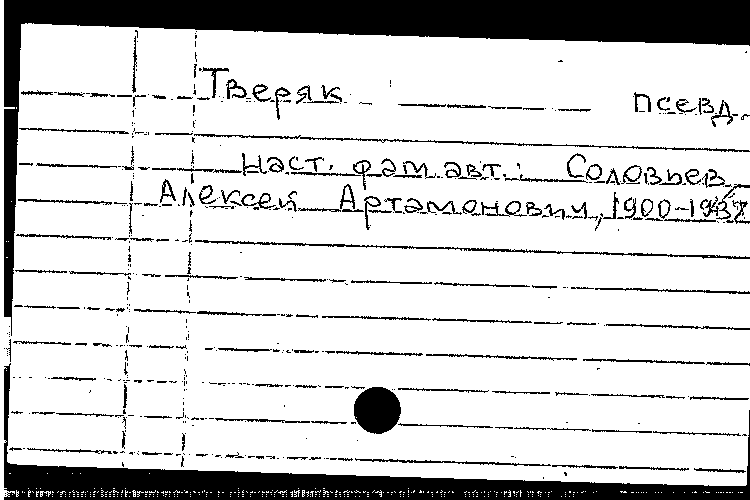 Тверяк псевд.
Наст. фам. авт.: Соловьев,
Алексей Артамонович, 1900-1937